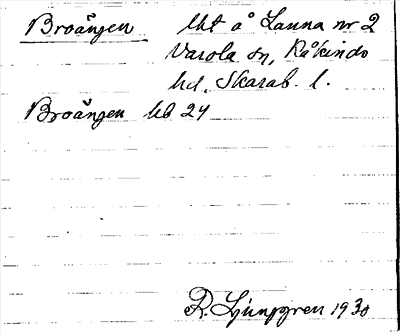 Broängen lht å Launa nr 2
Varola sn, Kåkinds
hd, Skarab. l.
Broängen hb 24
R. Ljunggren 1930